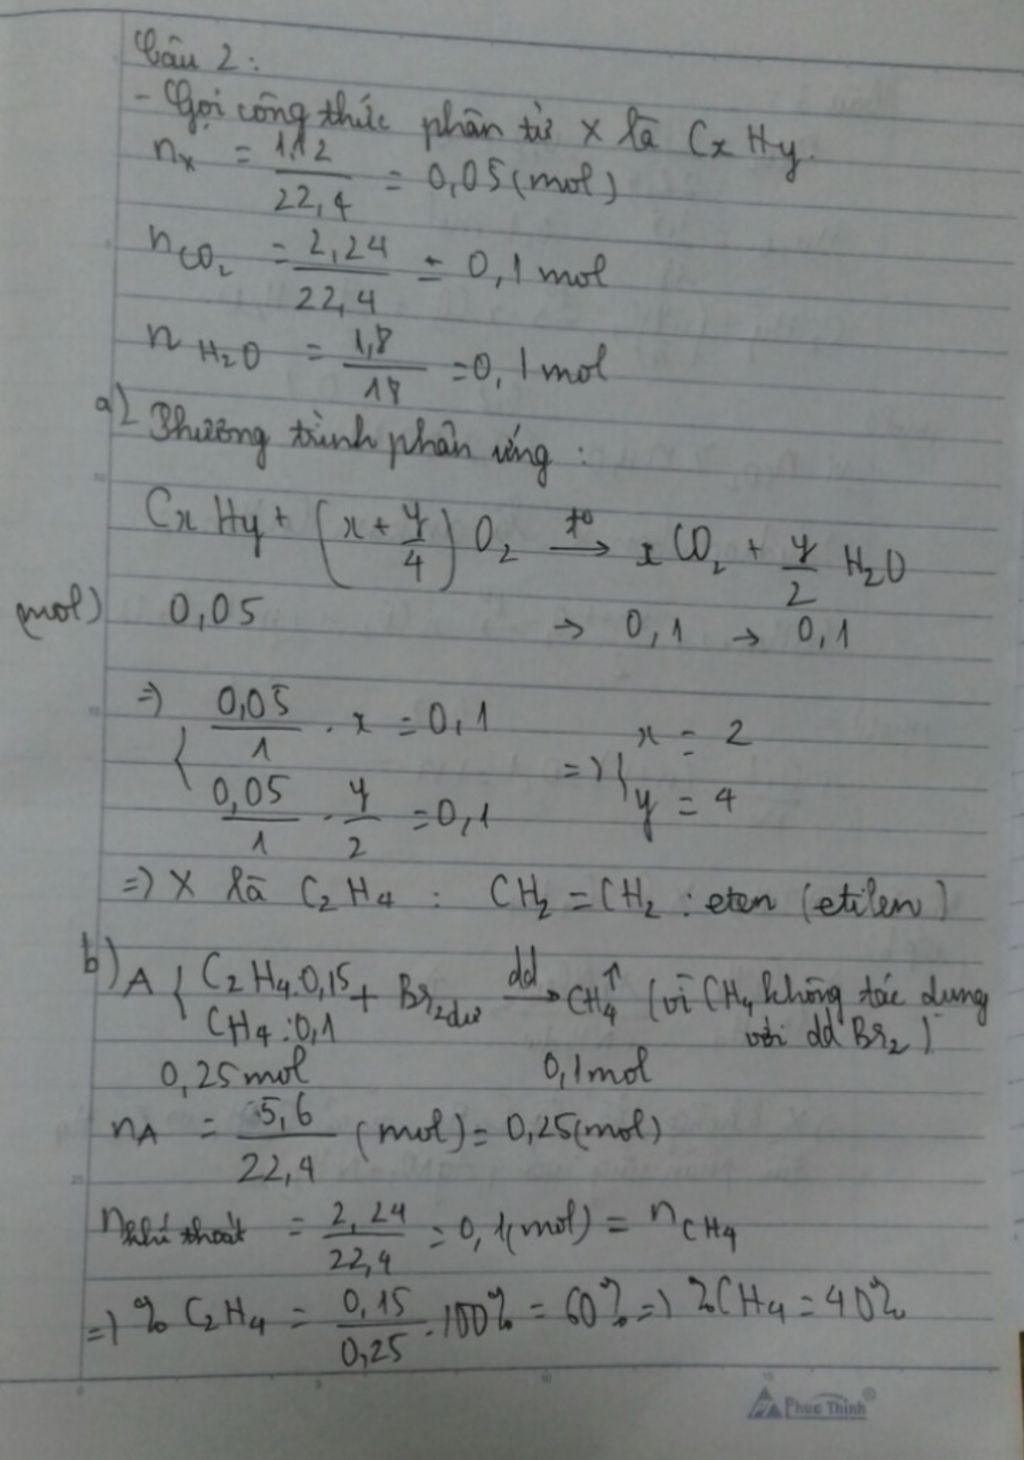 Câu 2:
- Gọi công thức phân tử X là CxHy.
nx = 1,12/22,4 = 0,05 (mol)
nCO₂ = 2,24/22,4 = 0,1 mol
nH₂O = 1,8/18 = 0,1 mol
a) Phương trình phản ứng:
CxHy + (x + y/4) O₂ —t°→ x CO₂ + y/2 H₂O
(mol) 0,05 → 0,1 → 0,1
=> { 0,05/1 . x = 0,1
0,05/1 . y/2 = 0,1 => { x = 2
y = 4
=> X là C₂H₄ : CH₂ = CH₂ : eten (etilen)
b) A { C₂H₄: 0,15
CH₄: 0,1 + Br₂ dư —dd→ CH₄↑ (vì CH₄ không tác dụng
với dd Br₂)
0,25 mol 0,1 mol
nA = 5,6/22,4 (mol) = 0,25 (mol)
nkhí thoát = 2,24/22,4 = 0,1 (mol) = nCH₄
=> % C₂H₄ = 0,15/0,25 . 100% = 60% => % CH₄ = 40%
Phuc Thinh®